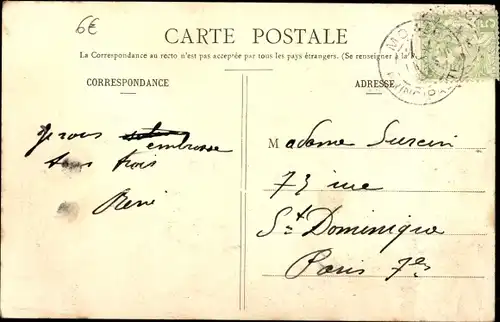 6€
CARTE POSTALE
La Correspondance au recto n'est pas acceptée par tous les pays étrangers. (Se renseigner à la
CORRESPONDANCE
ADRESSE
Je vous
embrasse
tous trois
René
Madame Surcin
73 rue
St Dominique
Paris 7es